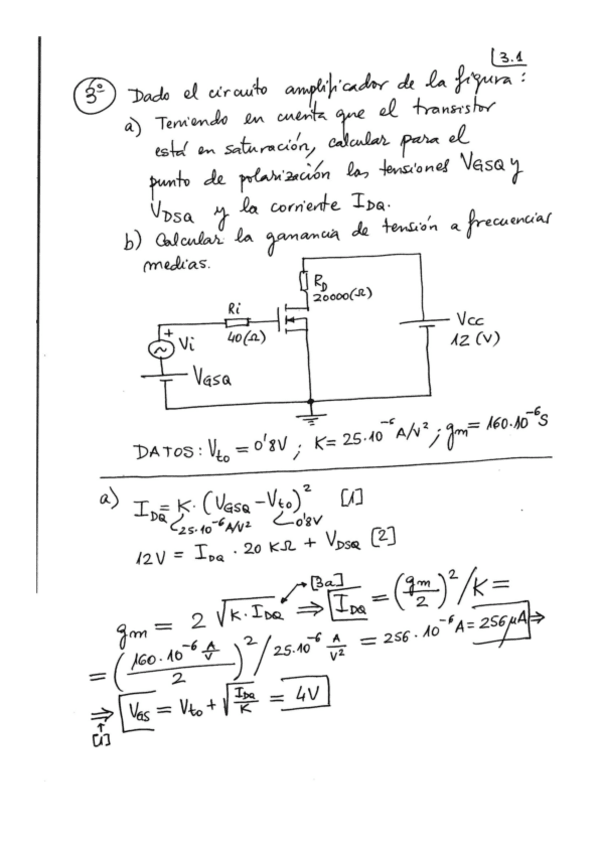 3.1
3º Dado el circuito amplificador de la figura:
a) Teniendo en cuenta que el transistor
está en saturación, calcular para el
punto de polarización las tensiones VGSQ y
VDSQ y la corriente IDQ.
b) Calcular la ganancia de tensión a frecuencias
medias.
RD
20000(Ω)
Ri
40(Ω)
+
Vi
VGSQ
VCC
12 (V)
DATOS: Vto = 0'8V ; K = 25·10⁻⁶ A/V² ; gm = 160·10⁻⁶ S
a) IDQ = K · (VGSQ - Vto)² [1]
25·10⁻⁶ A/V² 0'8V
12V = IDQ · 20 KΩ + VDSQ [2]
[3a]
gm = 2 √K·IDQ ⇒ IDQ = (gm/2)² / K =
= (160·10⁻⁶ A/V / 2)² / 25·10⁻⁶ A/V² = 256·10⁻⁶ A = 256 μA ⇒
⇒ VGS = Vto + √IDQ/K = 4V
[1]